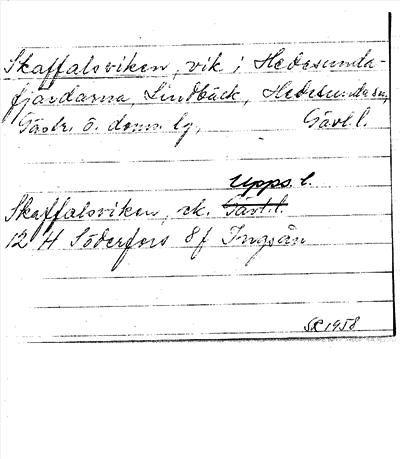 Skaffalsviken, vik i Hedesunda-
fjärdarna, Lindbäck, Hedesunda sn,
Gästr. ö. doms. lg, Gävl. l.
Upps. l.
Skaffalsviken, ek. Gävl. l.
12 H Söderfors 8 f Ingsån
SR 1958